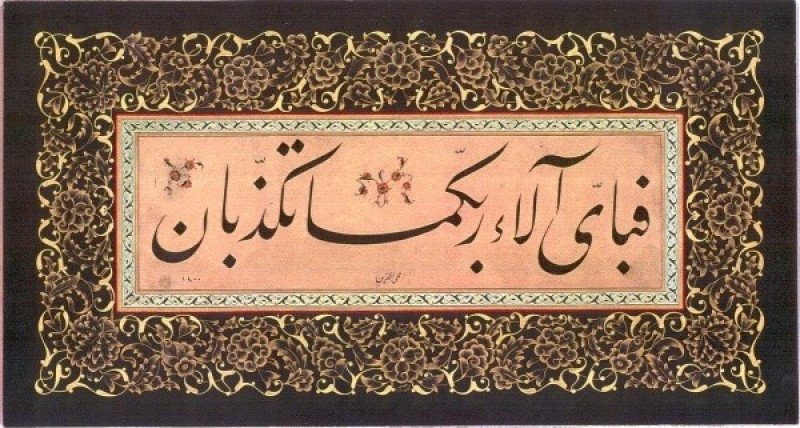 فبأیّ آلاء ربکّما تکذّبان